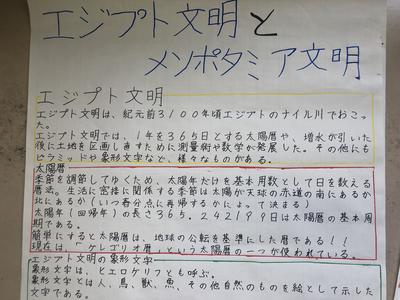 エジプト文明と
メソポタミア文明
エジプト文明
エジプト文明は、紀元前3100年頃エジプトのナイル川でおこっ
た。
エジプト文明では、1年を365日とする太陽暦や、増水が引いた
後に土地を区画し直すために測量術や数学が発展した。その他にも
ピラミッドや象形文字など、様々なものがある。
太陽暦
季節を調節してゆくため、太陽年だけを基本周数として日を数える
暦法。生活に密接に関係する季節は太陽が天球の赤道の南にあるか
北にあるか(いつ春分点に再帰するかによって決まる)
太陽年(1回帰年)の長さ365.242199日は太陽暦の基本周
期である。
簡単にすると太陽暦は、地球の公転を基準にした暦である!!
現在は、「グレゴリオ暦」という太陽暦の一つが使われている。
エジプト文明の象形文字
象形文字は、ヒエログリフとも呼ぶ。
象形文字とは人、鳥、獣、魚、その他自然のものを絵として示した
文字である。